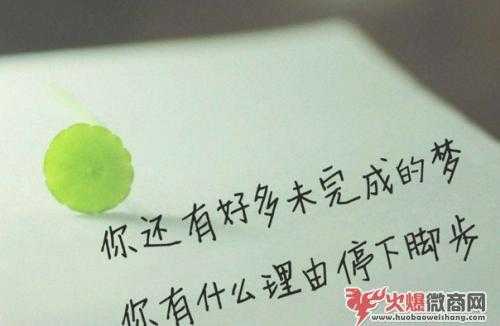 你还有好多未完成的梦
你有什么理由停下脚步
火爆微商网
www.huobaoweishang.com